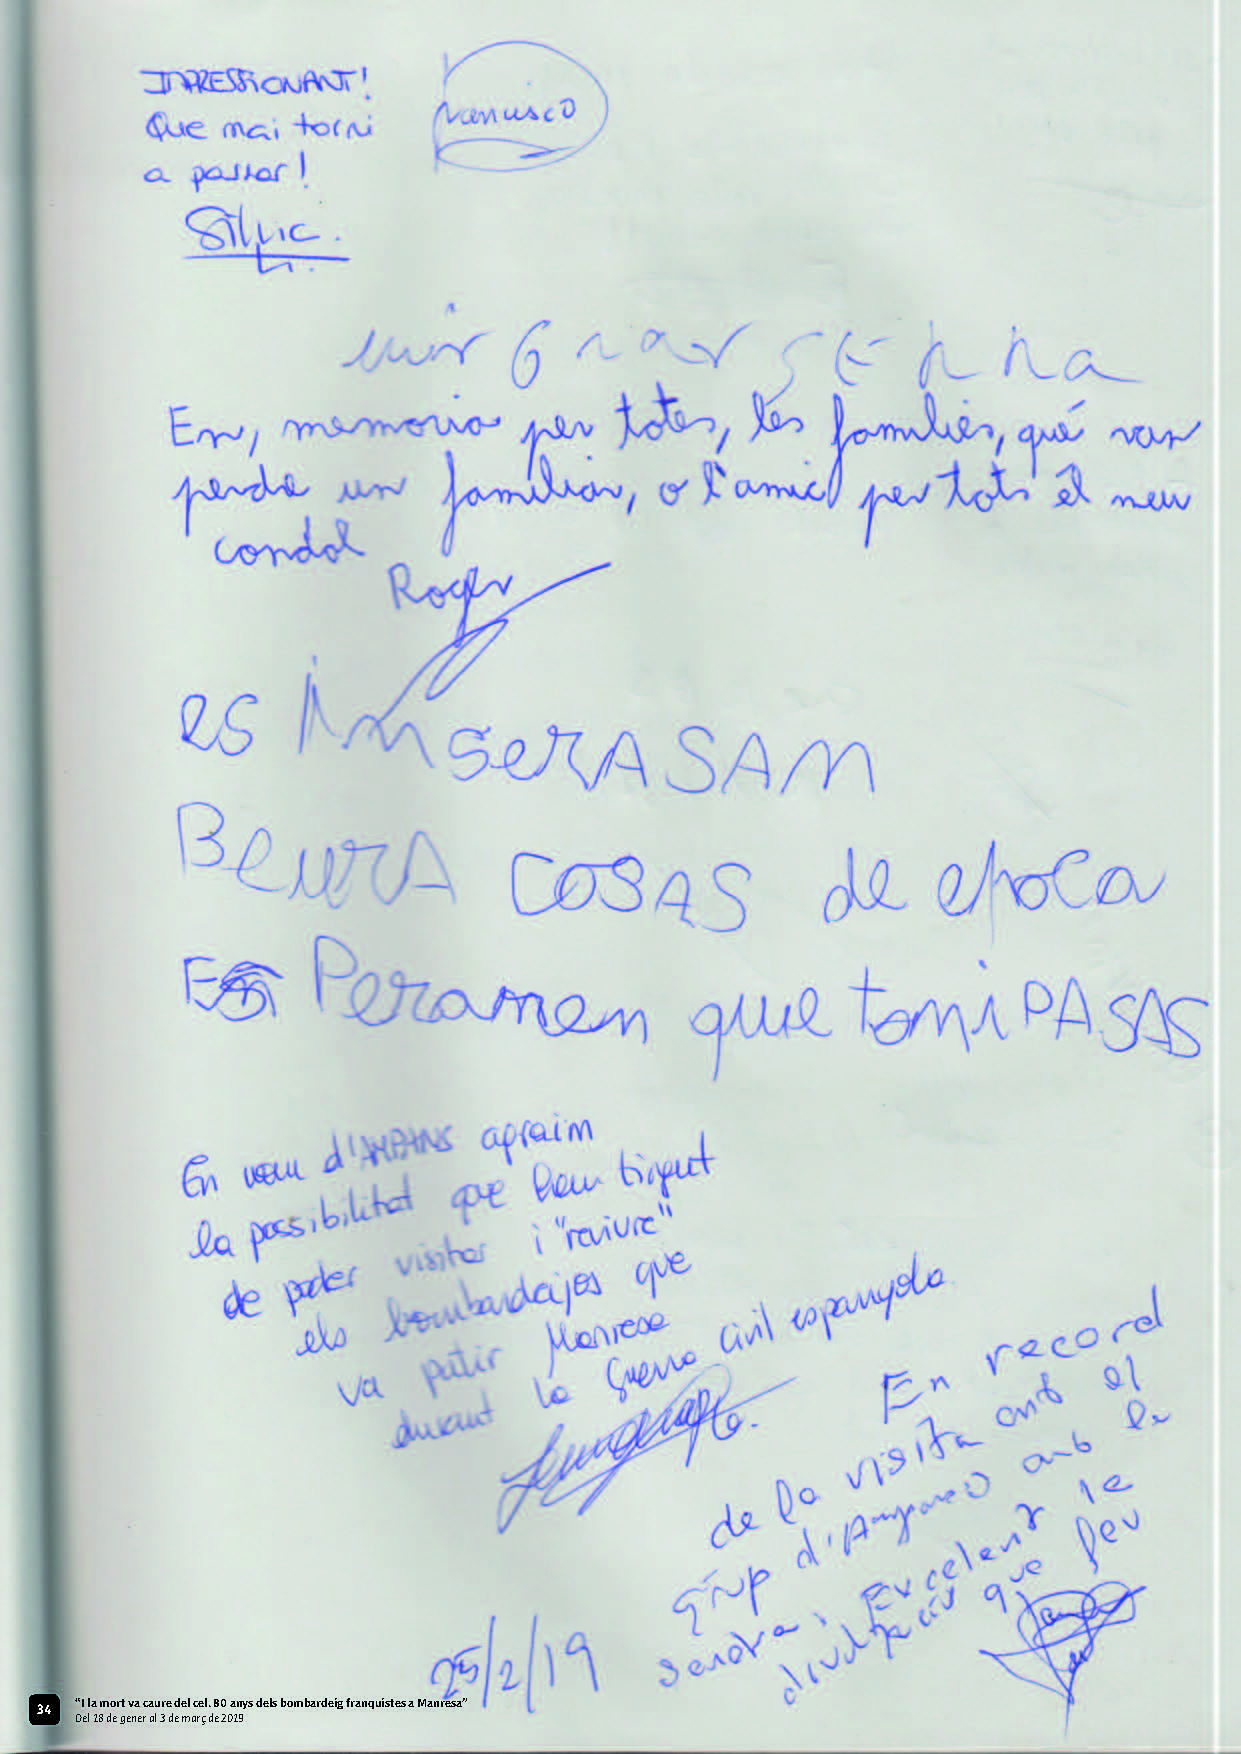 IMPRESSIONANT!
Que mai torni
a passar!
Sílvia.
Francisco
En, memoria per totes, les families, qué van
perde un familiar, o l'amic per tots el meu
condol
Roger
es
BEURA COSAS de epoca
Peranen que torni PASAS
En nom d'AMPANS agraim
la possibilitat que hem tingut
de poder visitar i "reviure"
els bombardejos que
va patir Manresa
durant la Guerra Civil espanyola.
En record
de la visita amb el
grup d'Ampans amb la
Sandra i Excelent la
divulgació que feu
25/2/19
34
"I la mort va caure del cel. 80 anys dels bombardeig franquistes a Manresa"
Del 18 de gener al 3 de març de 2019